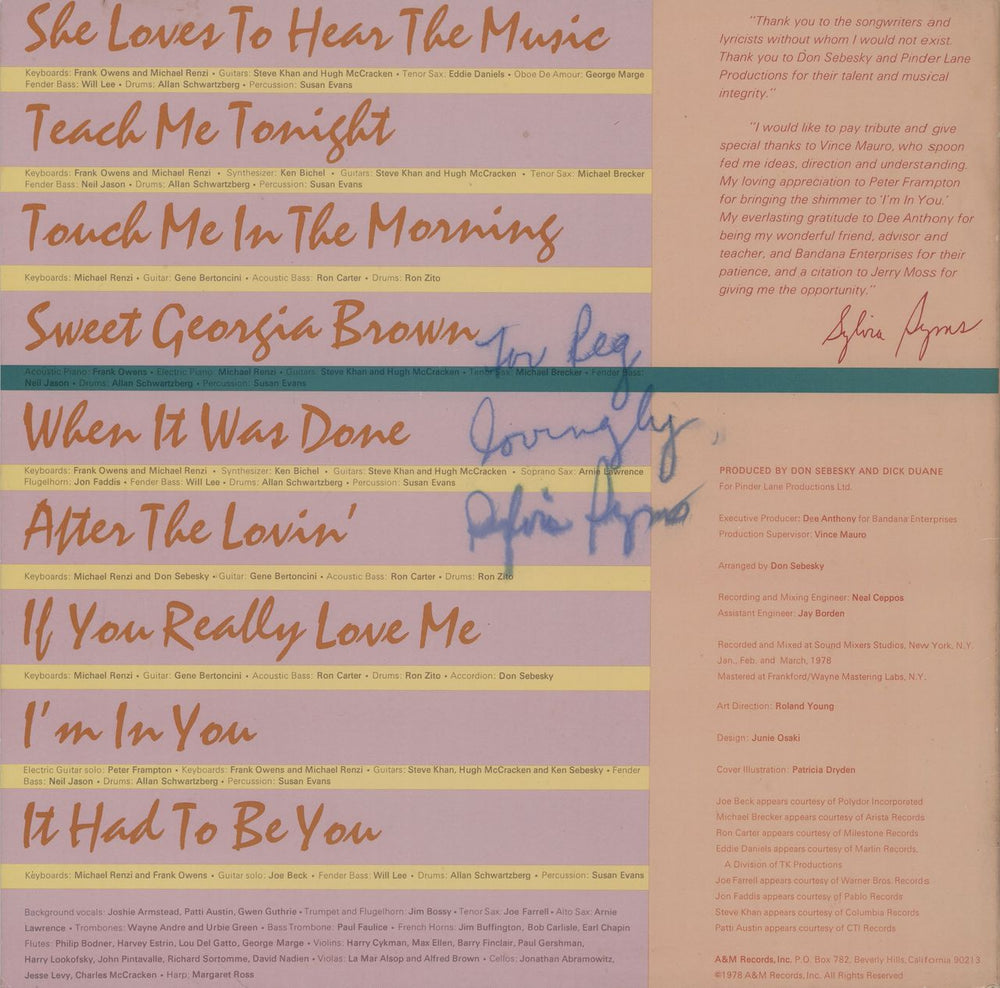 She Loves To Hear The Music
Keyboards: Frank Owens and Michael Renzi • Guitars: Steve Khan and Hugh McCracken • Tenor Sax: Eddie Daniels • Oboe De Amour: George Marge
Fender Bass: Will Lee • Drums: Allan Schwartzberg • Percussion: Susan Evans
Teach Me Tonight
Keyboards: Frank Owens and Michael Renzi • Synthesizer: Ken Bichel • Guitars: Steve Khan and Hugh McCracken • Tenor Sax: Michael Brecker
Fender Bass: Neil Jason • Drums: Allan Schwartzberg • Percussion: Susan Evans
Touch Me In The Morning
Keyboards: Michael Renzi • Guitar: Gene Bertoncini • Acoustic Bass: Ron Carter • Drums: Ron Zito
Sweet Georgia Brown
Acoustic Piano: Frank Owens • Electric Piano: Michael Renzi • Guitars: Steve Khan and Hugh McCracken • Tenor Sax: Michael Brecker • Fender Bass:
Neil Jason • Drums: Allan Schwartzberg • Percussion: Susan Evans
When It Was Done
Keyboards: Frank Owens and Michael Renzi • Synthesizer: Ken Bichel • Guitars: Steve Khan and Hugh McCracken • Soprano Sax: Arnie Lawrence
Flugelhorn: Jon Faddis • Fender Bass: Will Lee • Drums: Allan Schwartzberg • Percussion: Susan Evans
After The Lovin'
Keyboards: Michael Renzi and Don Sebesky • Guitar: Gene Bertoncini • Acoustic Bass: Ron Carter • Drums: Ron Zito
If You Really Love Me
Keyboards: Michael Renzi • Guitar: Gene Bertoncini • Acoustic Bass: Ron Carter • Drums: Ron Zito • Accordion: Don Sebesky
I'm In You
Electric Guitar solo: Peter Frampton • Keyboards: Frank Owens and Michael Renzi • Guitars: Steve Khan, Hugh McCracken and Ken Sebesky • Fender
Bass: Neil Jason • Drums: Allan Schwartzberg • Percussion: Susan Evans
It Had To Be You
Keyboards: Michael Renzi and Frank Owens • Guitar solo: Joe Beck • Fender Bass: Will Lee • Drums: Allan Schwartzberg • Percussion: Susan Evans
Background vocals: Joshie Armstead, Patti Austin, Gwen Guthrie • Trumpet and Flugelhorn: Jim Bossy • Tenor Sax: Joe Farrell • Alto Sax: Arnie
Lawrence • Trombones: Wayne Andre and Urbie Green • Bass Trombone: Paul Faulice • French Horns: Jim Buffington, Bob Carlisle, Earl Chapin
Flutes: Philip Bodner, Harvey Estrin, Lou Del Gatto, George Marge • Violins: Harry Cykman, Max Ellen, Barry Finclair, Paul Gershman,
Harry Lookofsky, John Pintavalle, Richard Sortomme, David Nadien • Violas: La Mar Alsop and Alfred Brown • Cellos: Jonathan Abramowitz,
Jesse Levy, Charles McCracken • Harp: Margaret Ross
For Reg
lovingly,
Sylvia Syms
"Thank you to the songwriters and
lyricists without whom I would not exist.
Thank you to Don Sebesky and Pinder Lane
Productions for their talent and musical
integrity."
"I would like to pay tribute and give
special thanks to Vince Mauro, who spoon
fed me ideas, direction and understanding.
My loving appreciation to Peter Frampton
for bringing the shimmer to 'I'm In You.'
My everlasting gratitude to Dee Anthony for
being my wonderful friend, advisor and
teacher, and Bandana Enterprises for their
patience, and a citation to Jerry Moss for
giving me the opportunity."
Sylvia Syms
PRODUCED BY DON SEBESKY AND DICK DUANE
For Pinder Lane Productions Ltd.
Executive Producer: Dee Anthony for Bandana Enterprises
Production Supervisor: Vince Mauro
Arranged by Don Sebesky
Recording and Mixing Engineer: Neal Ceppos
Assistant Engineer: Jay Borden
Recorded and Mixed at Sound Mixers Studios, New York, N.Y.
Jan., Feb. and March, 1978
Mastered at Frankford/Wayne Mastering Labs, N.Y.
Art Direction: Roland Young
Design: Junie Osaki
Cover Illustration: Patricia Dryden
Joe Beck appears courtesy of Polydor Incorporated
Michael Brecker appears courtesy of Arista Records
Ron Carter appears courtesy of Milestone Records
Eddie Daniels appears courtesy of Marlin Records,
A Division of TK Productions
Joe Farrell appears courtesy of Warner Bros. Records
Jon Faddis appears courtesy of Pablo Records
Steve Khan appears courtesy of Columbia Records
Patti Austin appears courtesy of CTI Records
A&M Records, Inc. P.O. Box 782, Beverly Hills, California 90213
©1978 A&M Records, Inc. All Rights Reserved